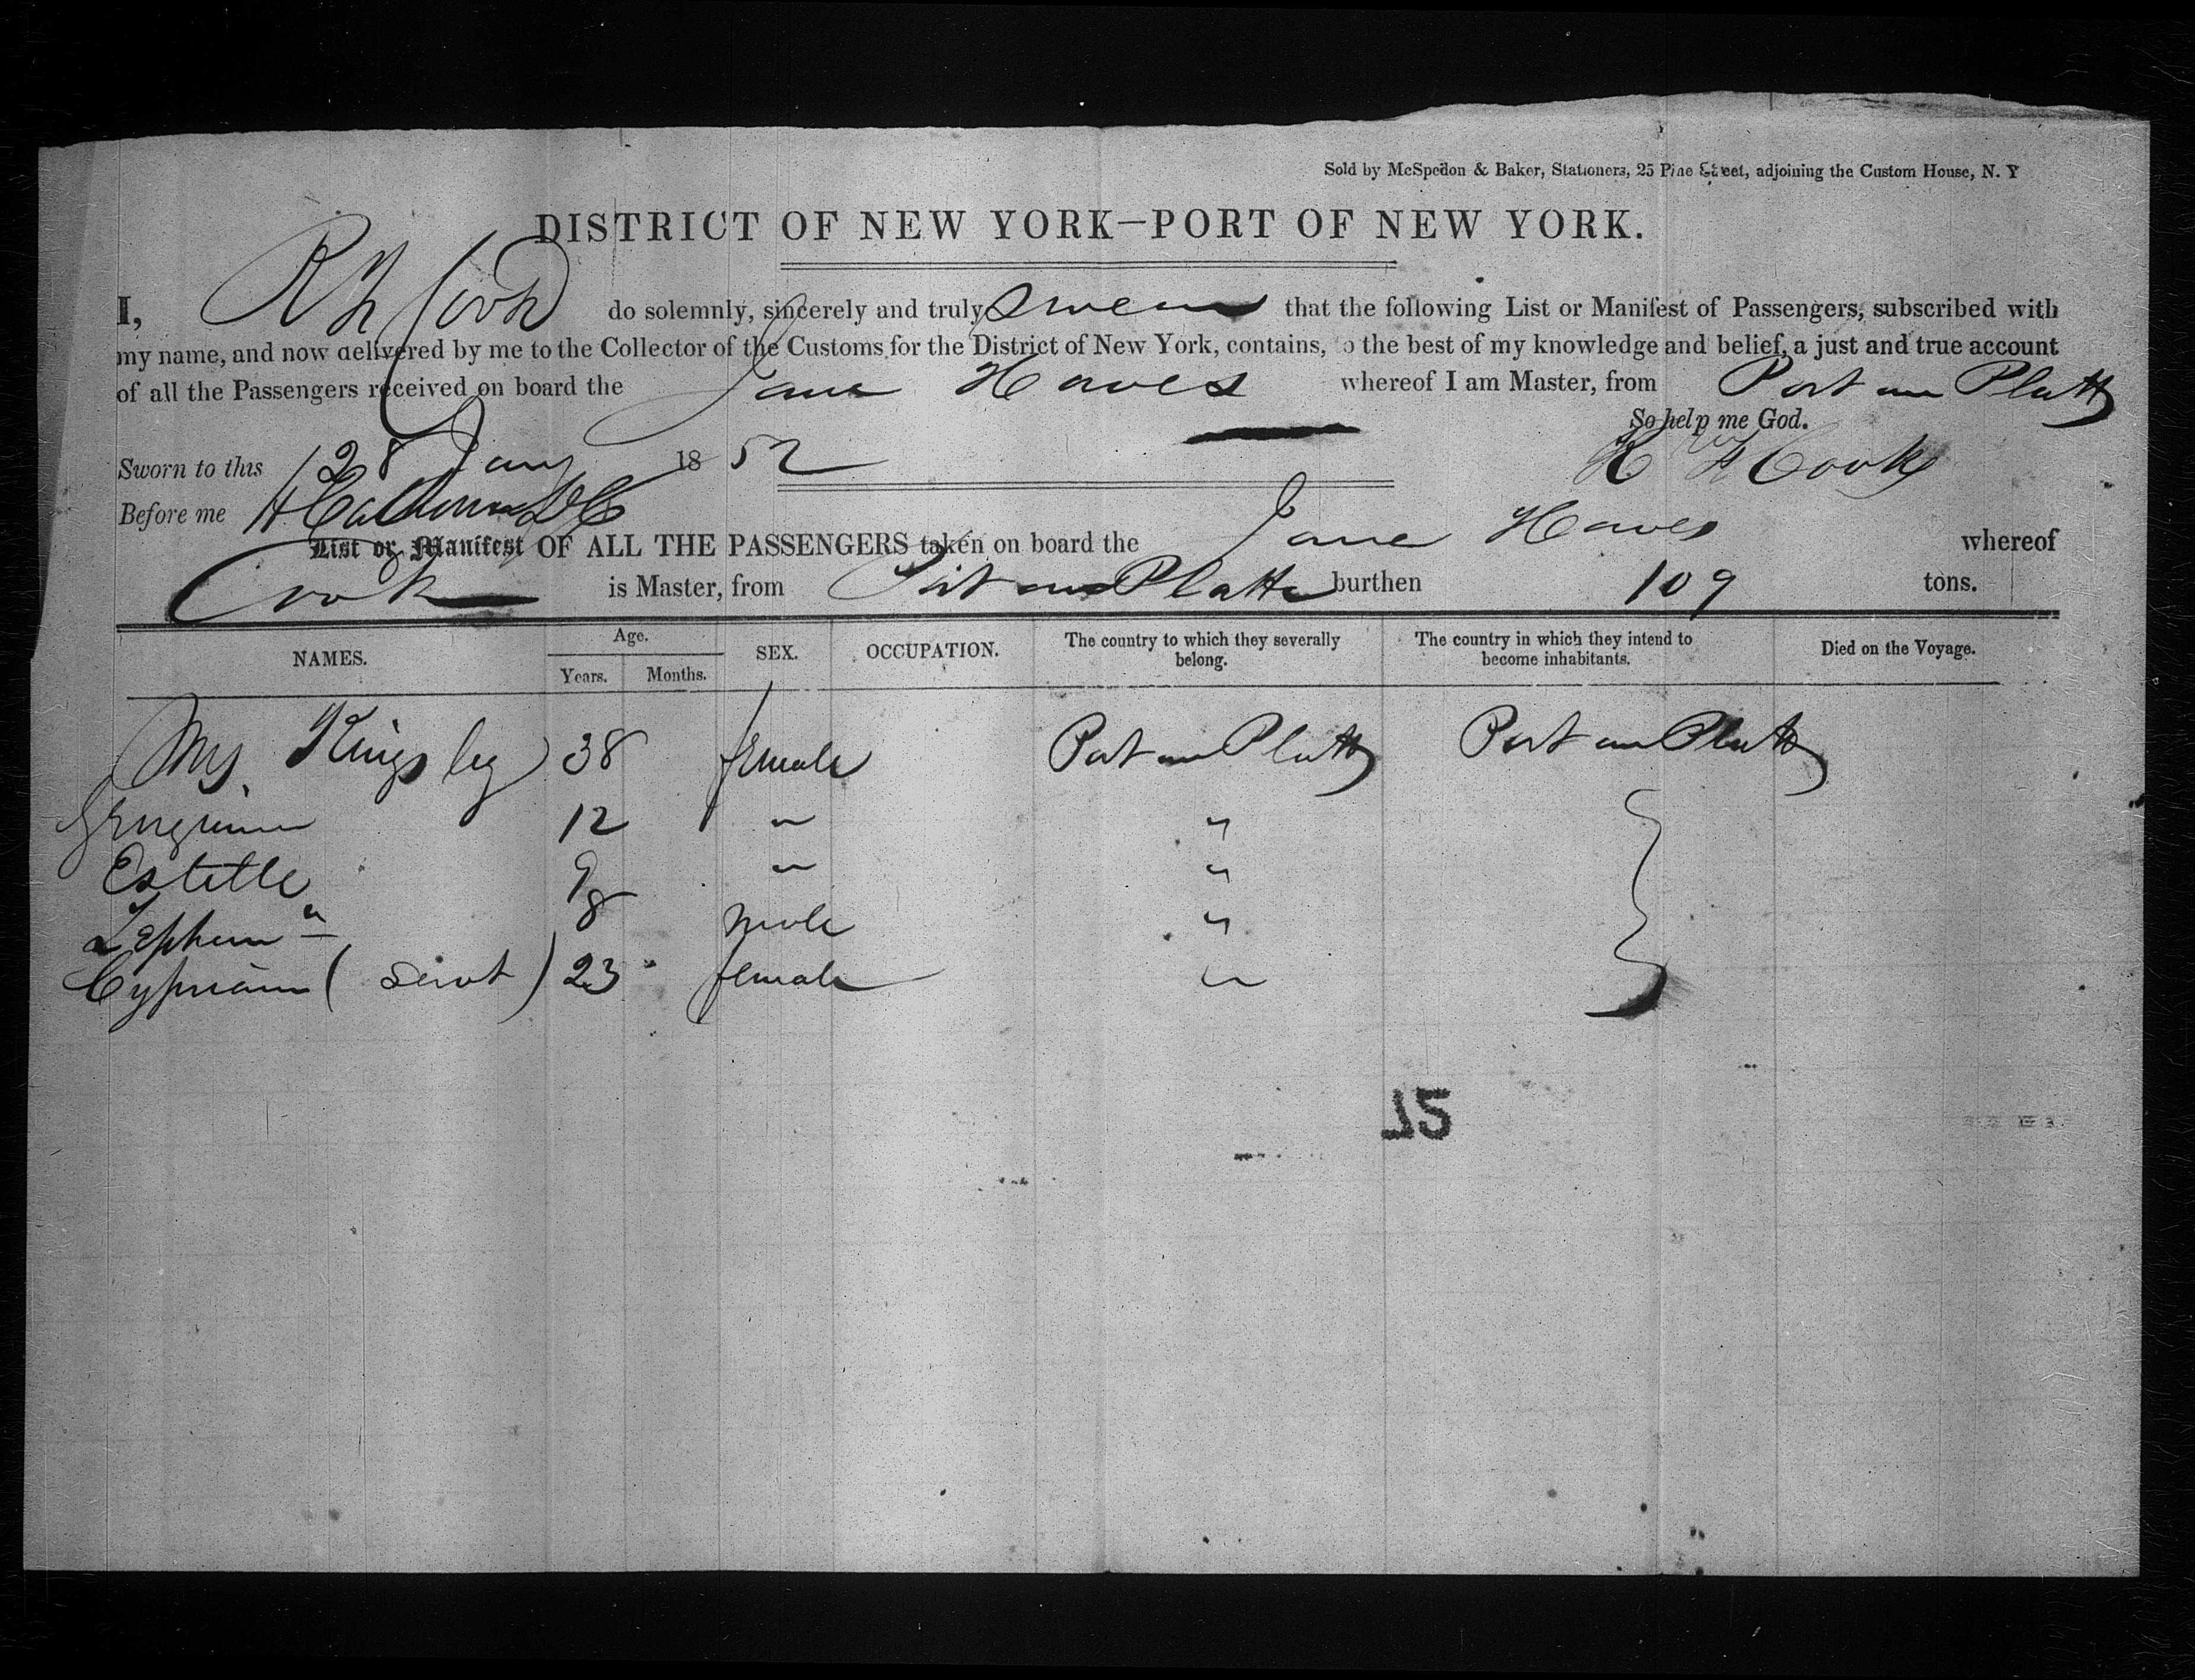 Sold by McSpedon & Baker, Stationers, 25 Pine Street, adjoining the Custom House, N. Y
DISTRICT OF NEW YORK—PORT OF NEW YORK.
I, Cook do solemnly, sincerely and truly swear that the following List or Manifest of Passengers, subscribed with
my name, and now delivered by me to the Collector of the Customs for the District of New York, contains, to the best of my knowledge and belief, a just and true account
of all the Passengers received on board the Jane Haves whereof I am Master, from Port au Platt
So help me God.
Sworn to this 28 Jany 1852 Cook
Before me
List or Manifest OF ALL THE PASSENGERS taken on board the Jane Haves whereof
Cook is Master, from Port au Platte burthen 109 tons.
NAMES. Age. SEX. OCCUPATION. The country to which they severally belong. The country in which they intend to become inhabitants. Died on the Voyage.
Years. Months.
Mrs. Kingsley 38 female Port au Platt Port au Platt
12 " "
Estelle 9 " "
8 male "
(servt) 23 female "
15